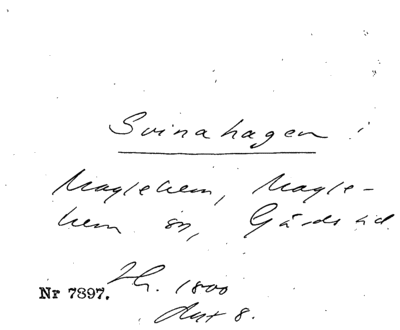 Svinahagen
Maglehem, Magle-
hem sn, Gärds hd.
Nr 7897.
1800
8.